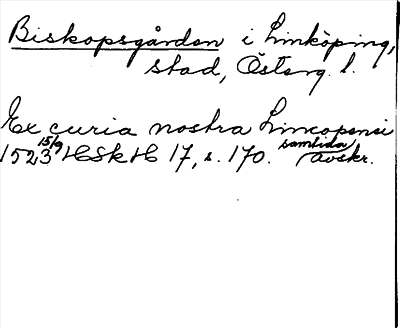 Biskopsgården i Linköping,
stad, Österg. l.
Ex curia nostra Lincopensi
1523 15/9 HSkH 17, s. 170. samtida avskr.